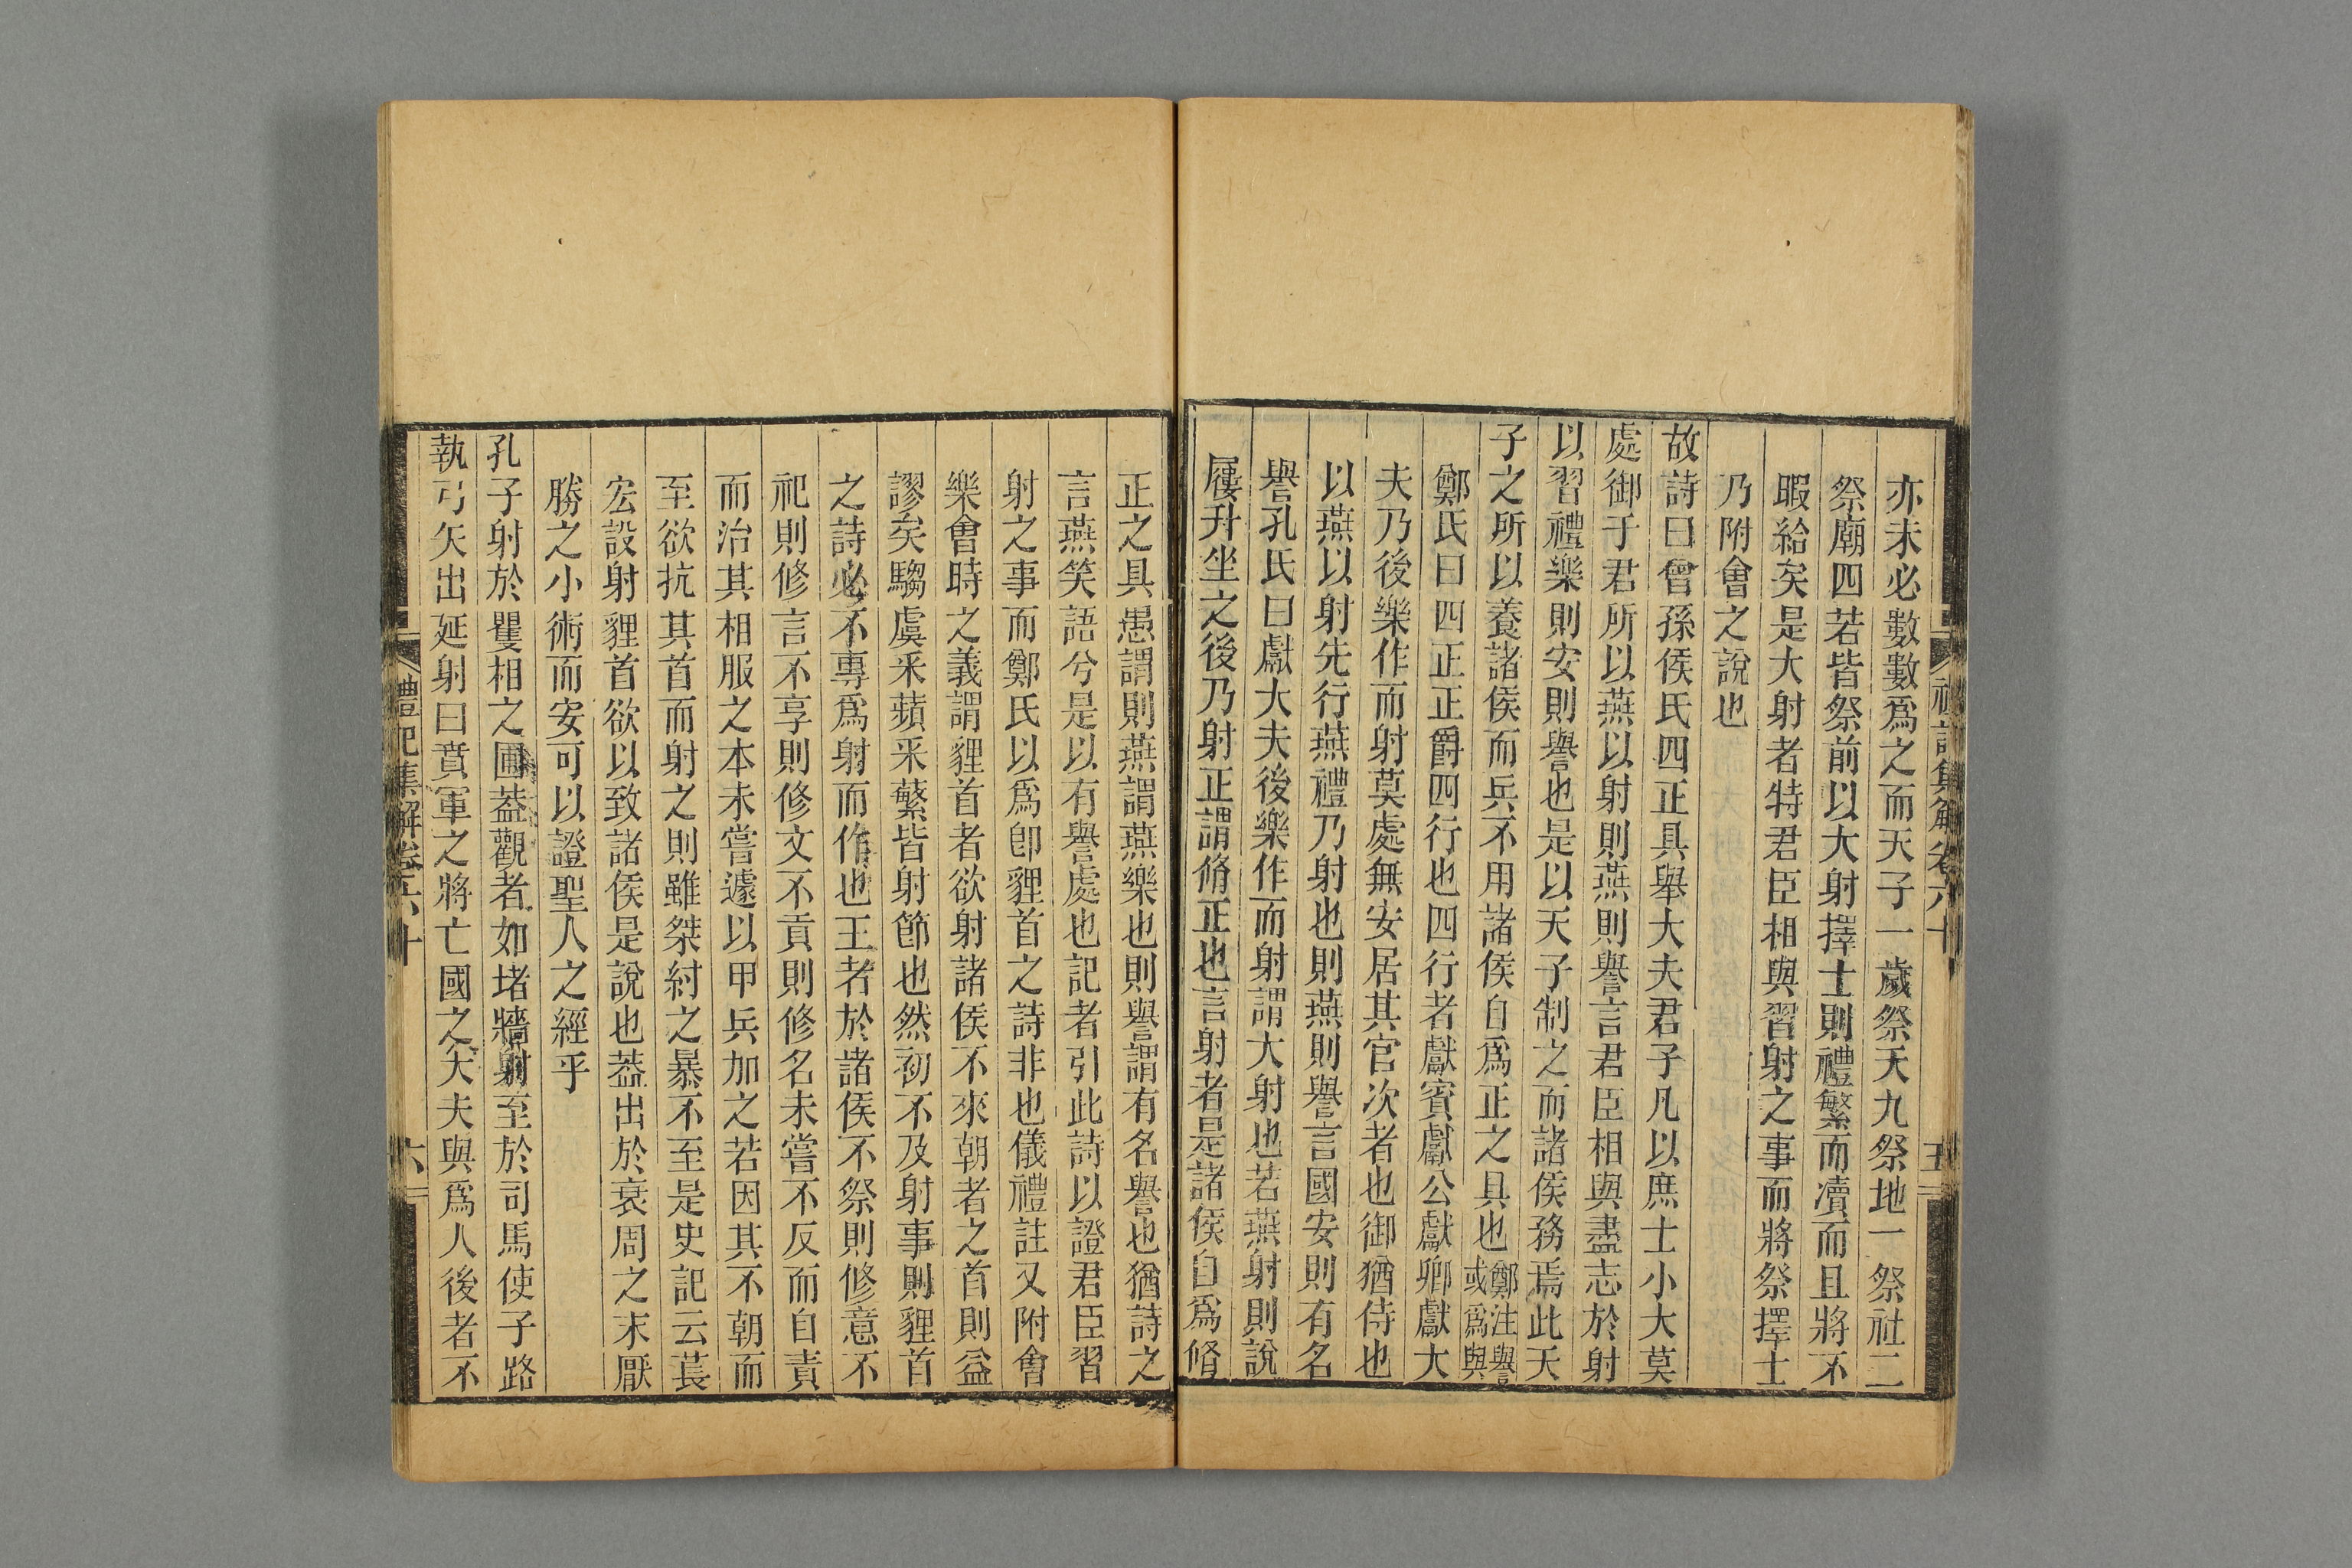 禮記集解卷六十
五
亦未必數數爲之而天子一歲祭天九祭地一祭社二
祭廟四若皆祭前以大射擇士則禮繁而凟而且將不
暇給矣是大射者特君臣相與習射之事而將祭擇士
乃附會之說也
故詩曰曾孫侯氏四正具舉大夫君子凡以庶士小大莫
處御于君所以燕以射則燕則譽言君臣相與盡志於射
以習禮樂則安則譽也是以天子制之而諸侯務焉此天
子之所以養諸侯而兵不用諸侯自爲正之具也鄭注譽或爲與
鄭氏曰四正正爵四行也四行者獻賓獻公獻卿獻大
夫乃後樂作而射莫處無安居其官次者也御猶侍也
以燕以射先行燕禮乃射也則燕則譽言國安則有名
譽孔氏曰獻大夫後樂作而射謂大射也若燕射則說
屨升坐之後乃射正謂脩正也言射者是諸侯自爲脩
正之具愚謂則燕謂燕樂也則譽謂有名譽也猶詩之
言燕笑語兮是以有譽處也記者引此詩以證君臣習
射之事而鄭氏以爲卽貍首之詩非也儀禮註又附會
樂會時之義謂貍首者欲射諸侯不來朝者之首則益
謬矣騶虞采蘋采蘩皆射節也然初不及射事則貍首
之詩必不專爲射而作也王者於諸侯不祭則修意不
祀則修言不享則修文不貢則修名未嘗不反而自責
而治其相服之本未嘗遽以甲兵加之若因其不朝而
至欲抗其首而射之則雖桀紂之暴不至是史記云萇
宏設射貍首欲以致諸侯是說也葢出於衰周之末厭
勝之小術而安可以證聖人之經乎
孔子射於矍相之圃葢觀者如堵牆射至於司馬使子路
執弓矢出延射曰賁軍之將亡國之大夫與爲人後者不
禮記集解卷六十
六